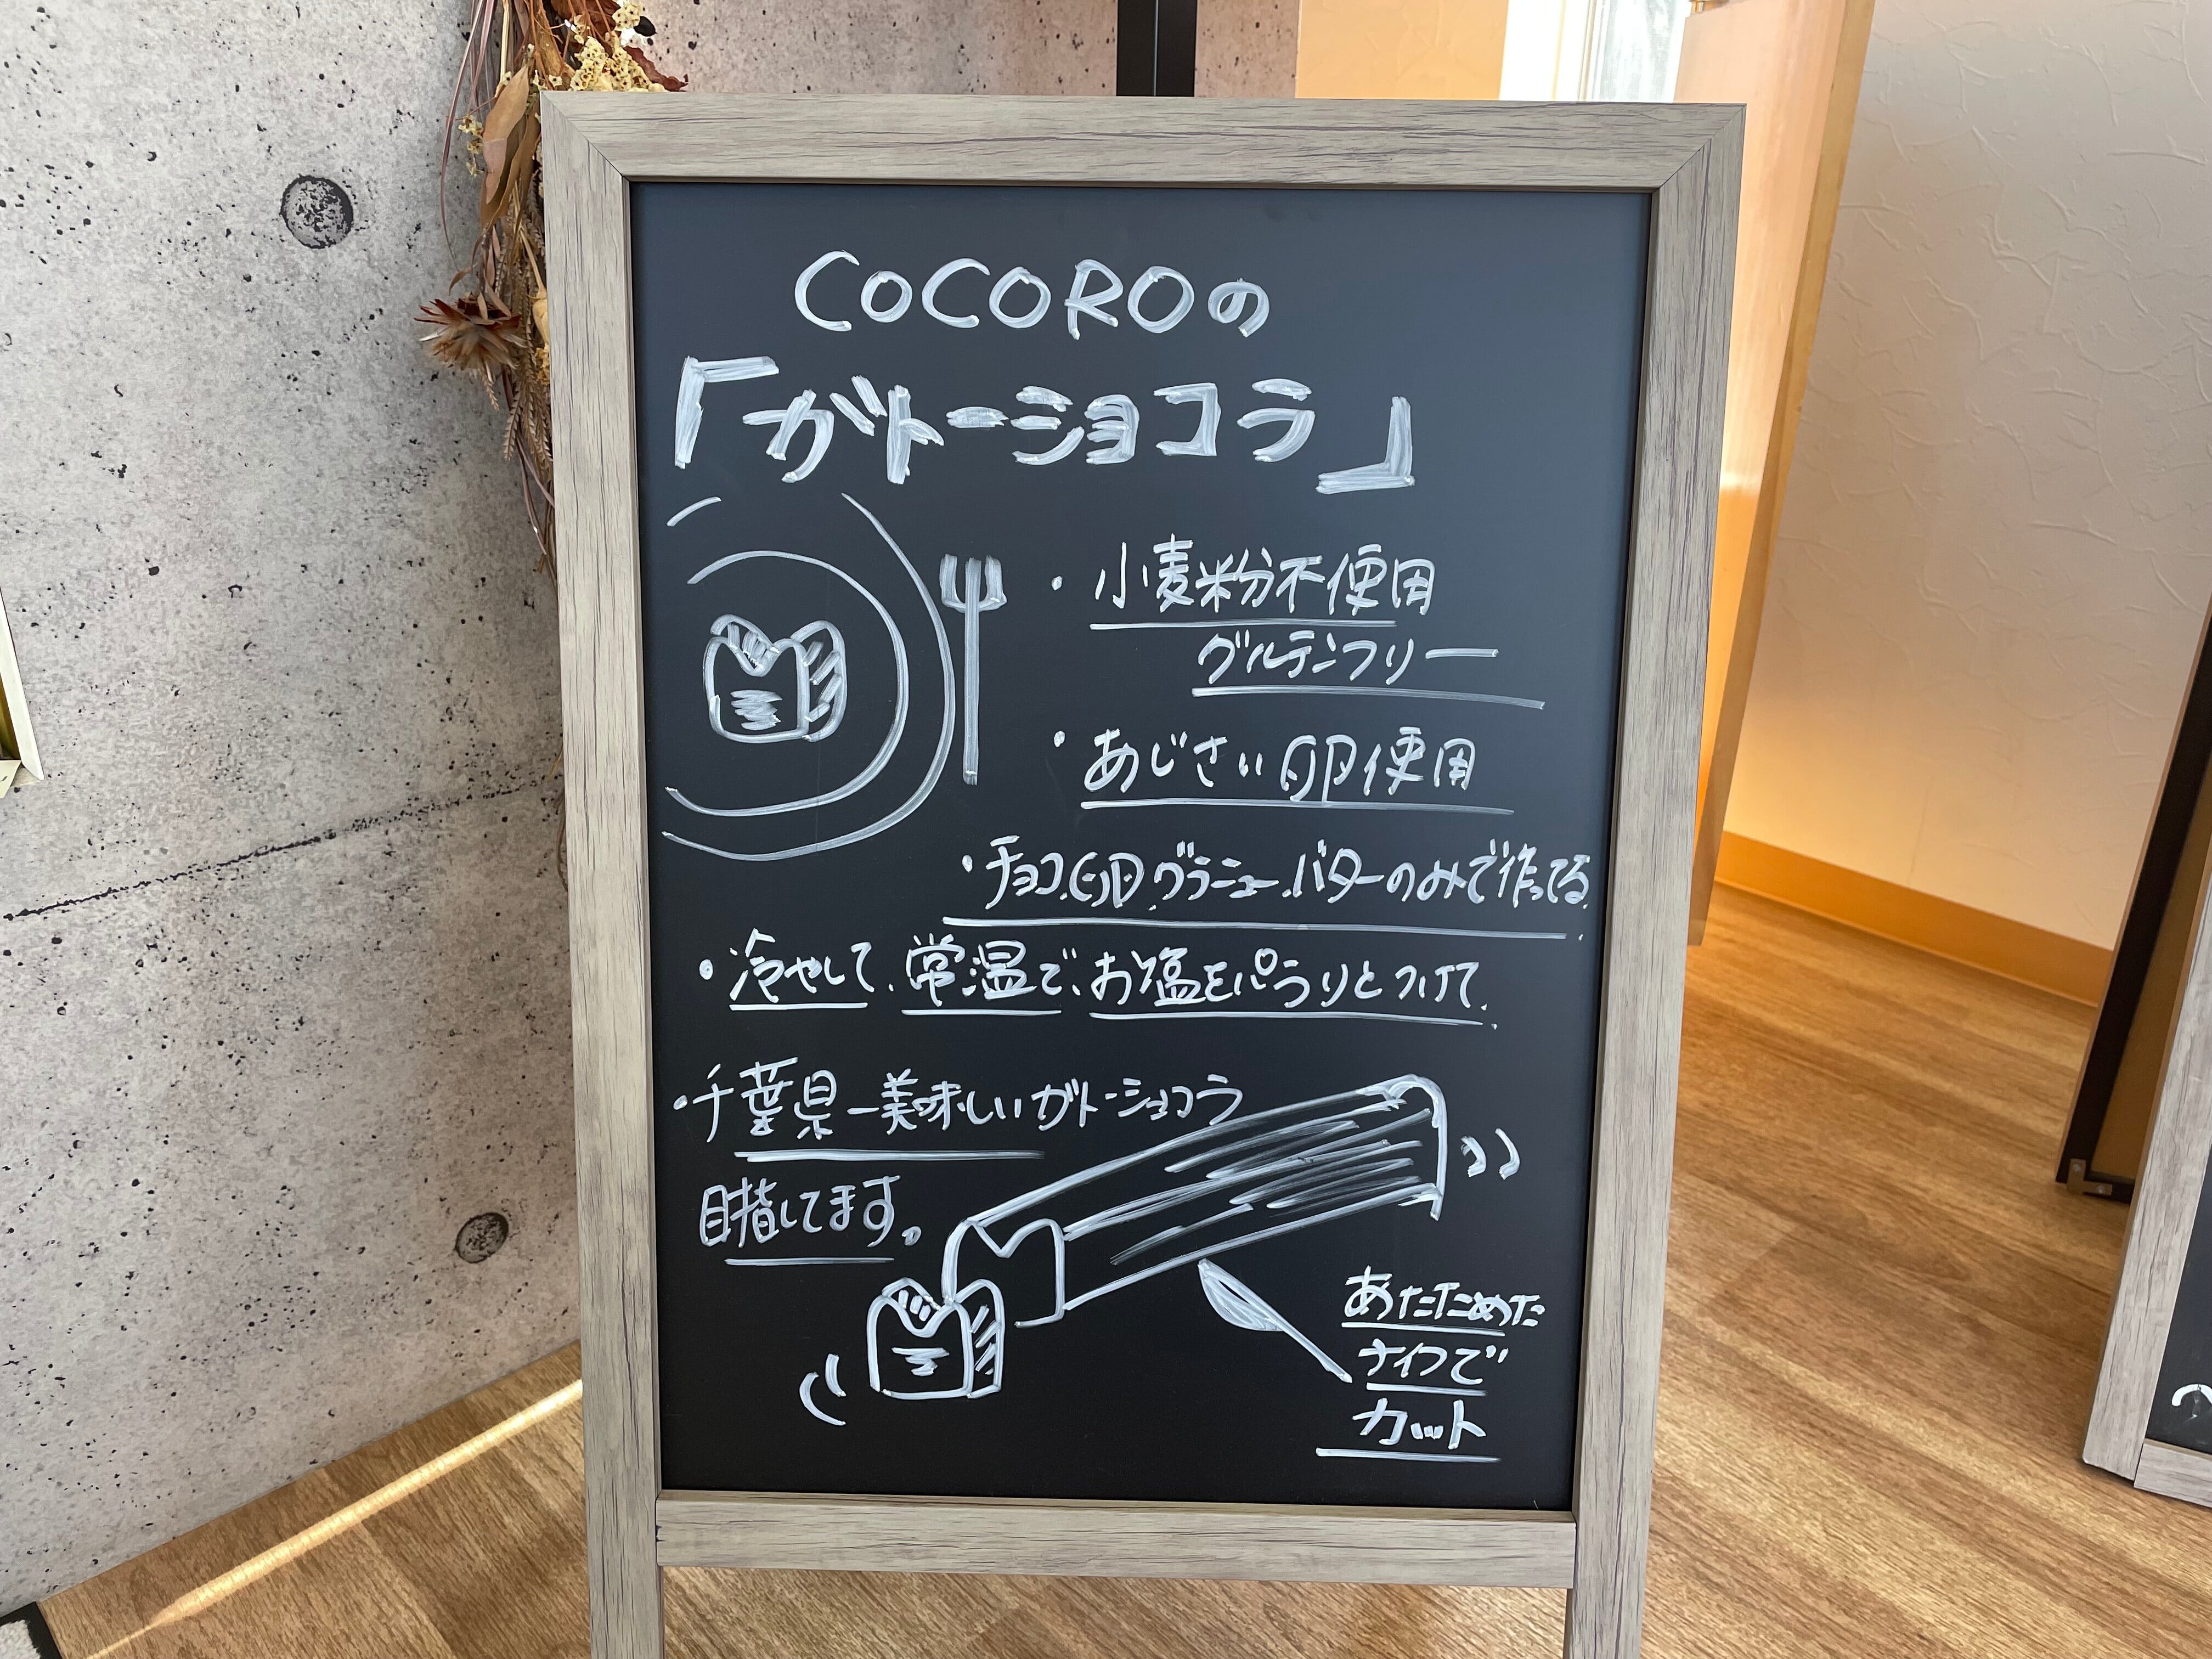 COCOROの
「ガトーショコラ」
・小麦粉不使用
グルテンフリー
・あじさい卵使用
・チョコ.卵.グラニュー.バターのみで作ってる.
・冷やして、常温で、お塩をパラリとつけて.
・千葉県一美味しいガトーショコラ
目指してます。
あたためた
ナイフで
カット